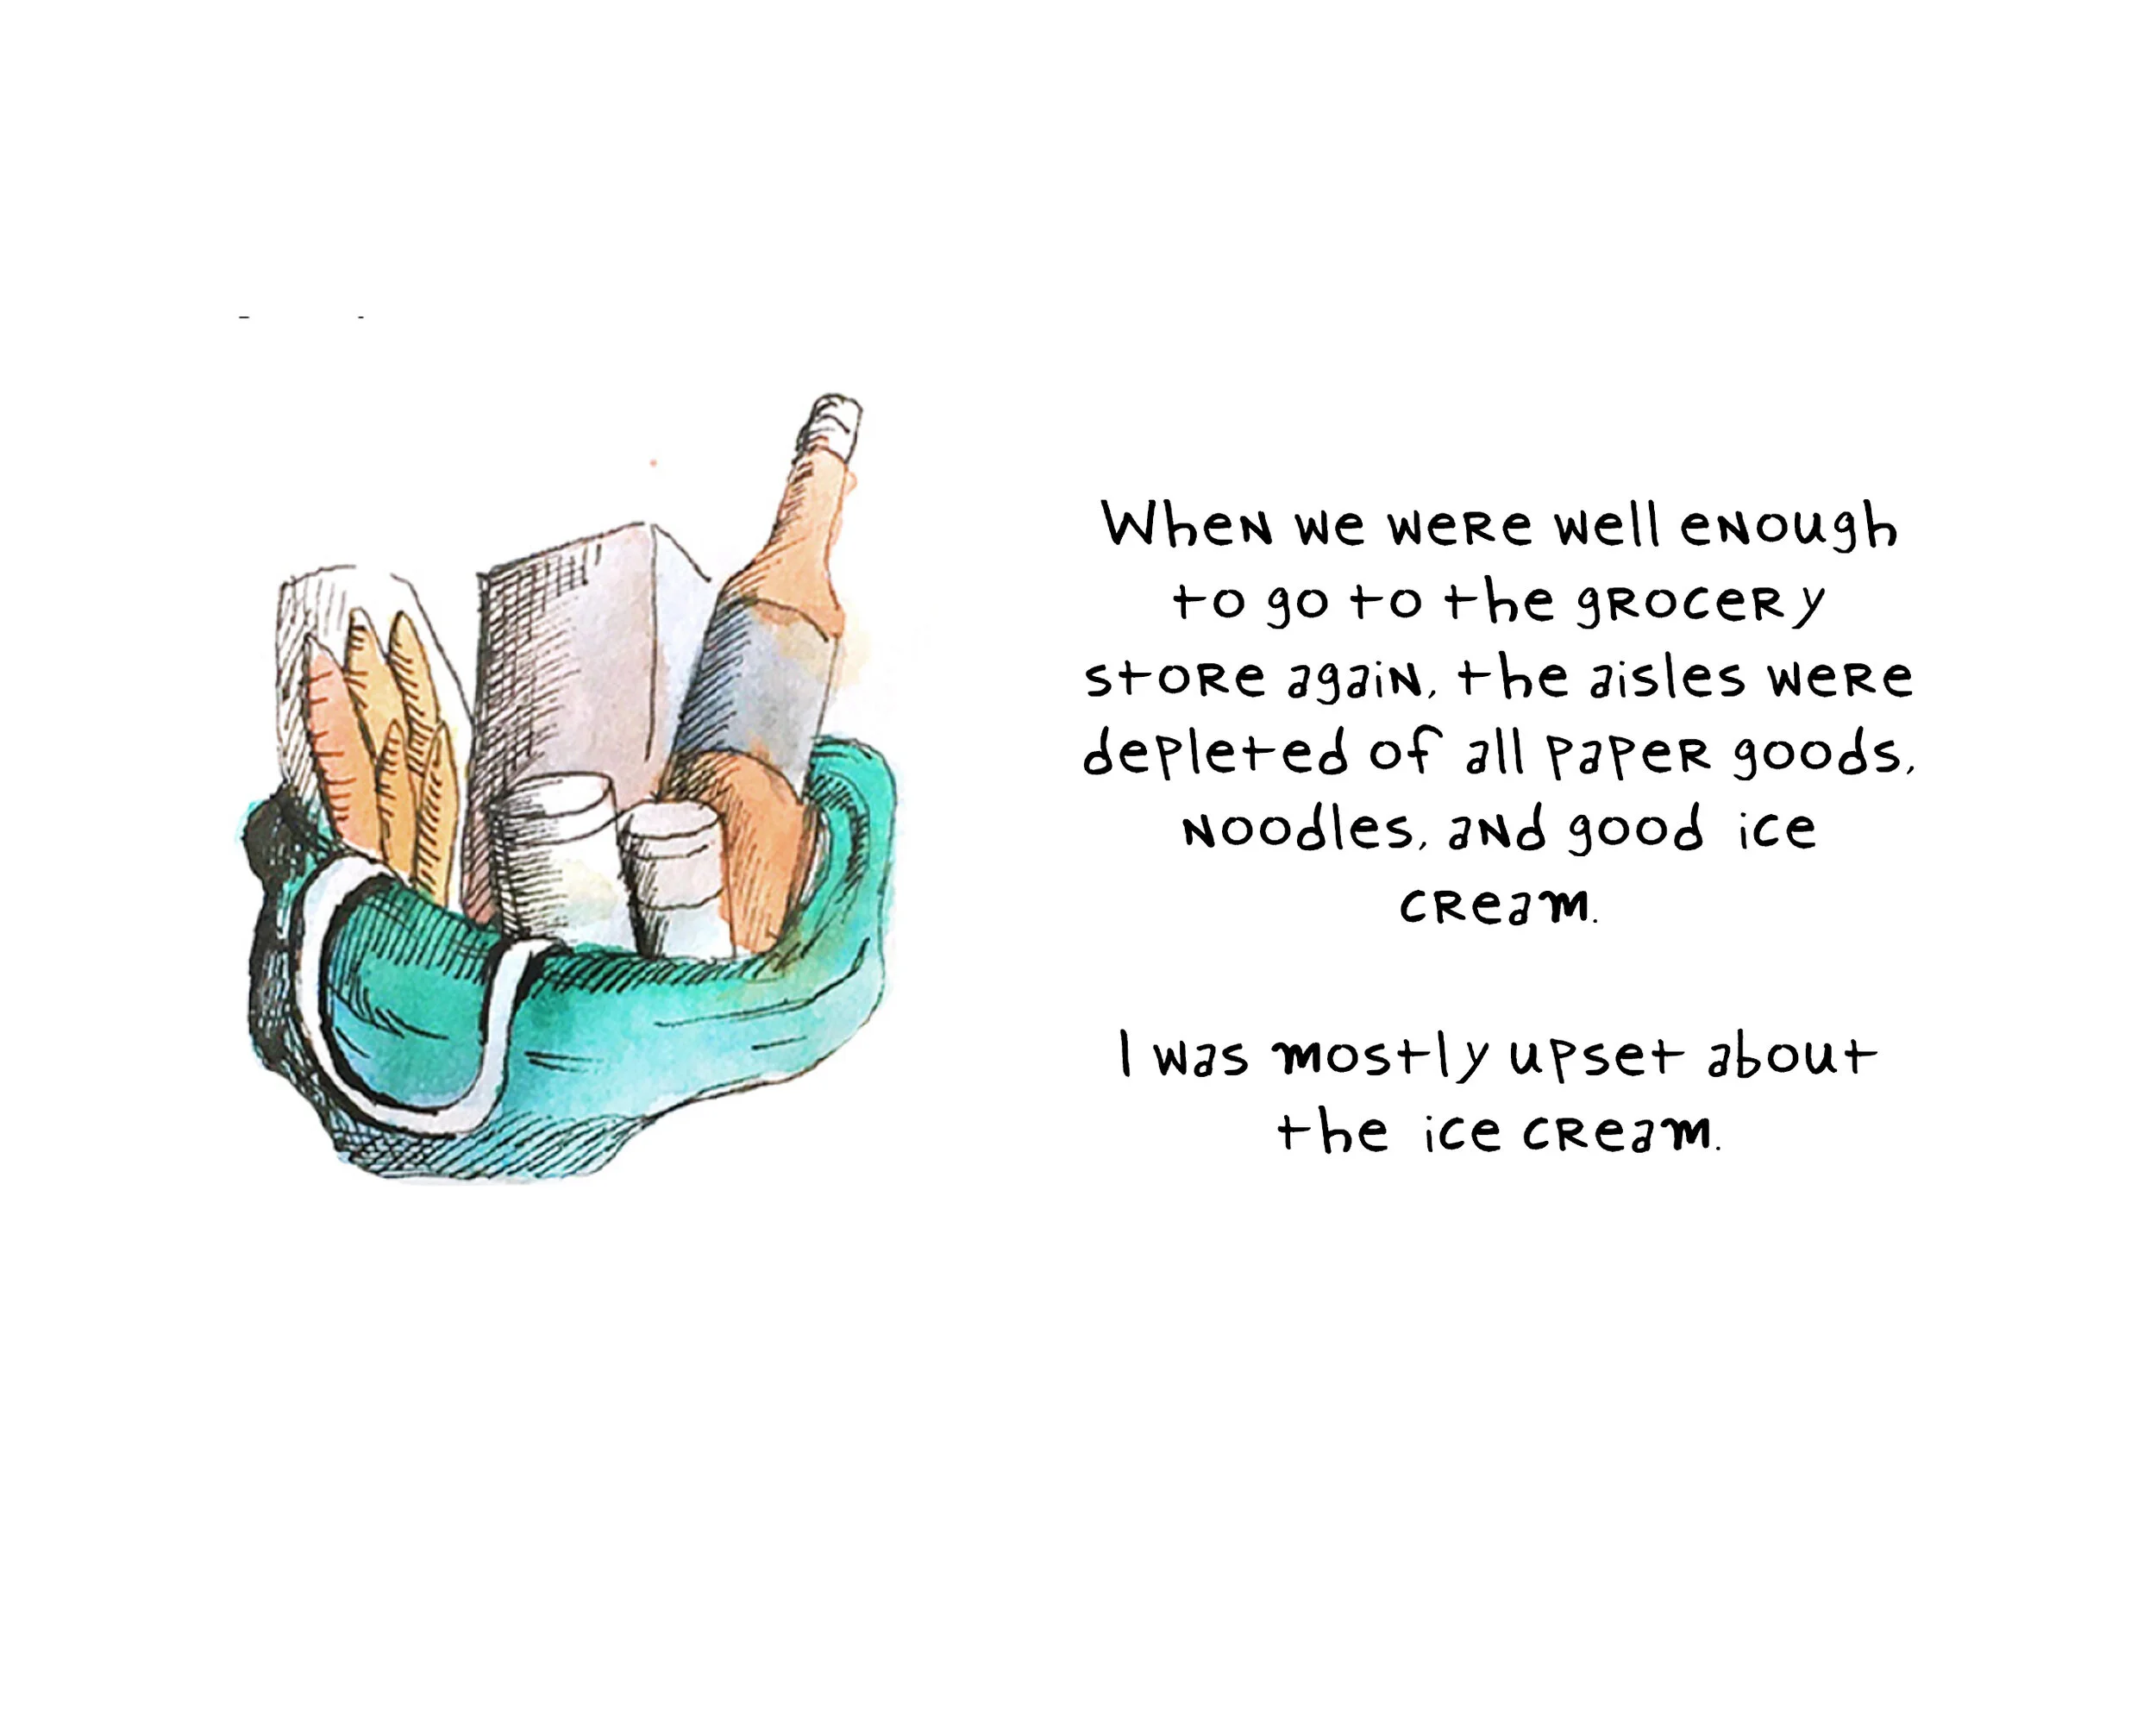 When we were well enough
to go to the grocery
store again, the aisles were
depleted of all paper goods,
noodles, and good ice
cream.
I was mostly upset about
the ice cream.